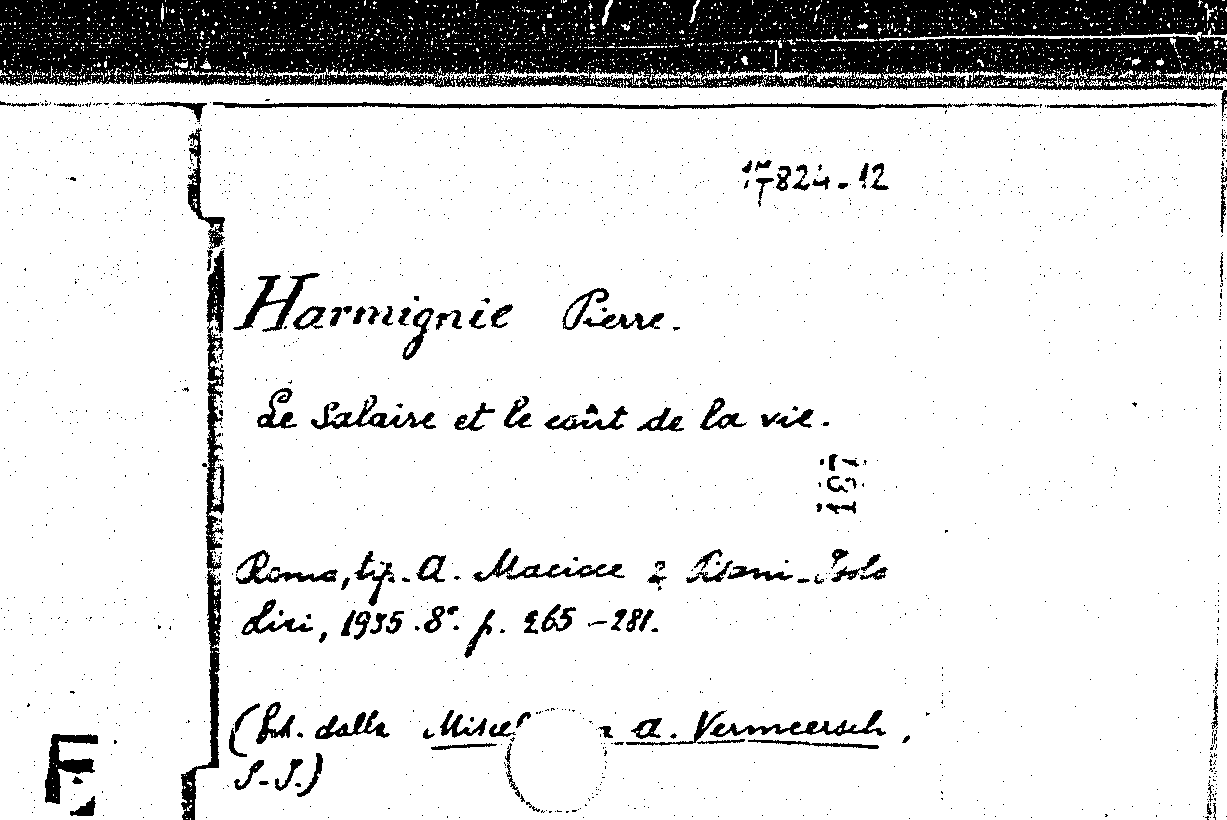 17824-12
Harmignie Pierre.
Le Salaire et le coût de la vie.
197
Roma, tip. A. Macioce & Pisani-Isola
Liri, 1935.8°. p. 265-281.
(Est. dalla Miscel a A. Vermeersch,
S.J.)
F